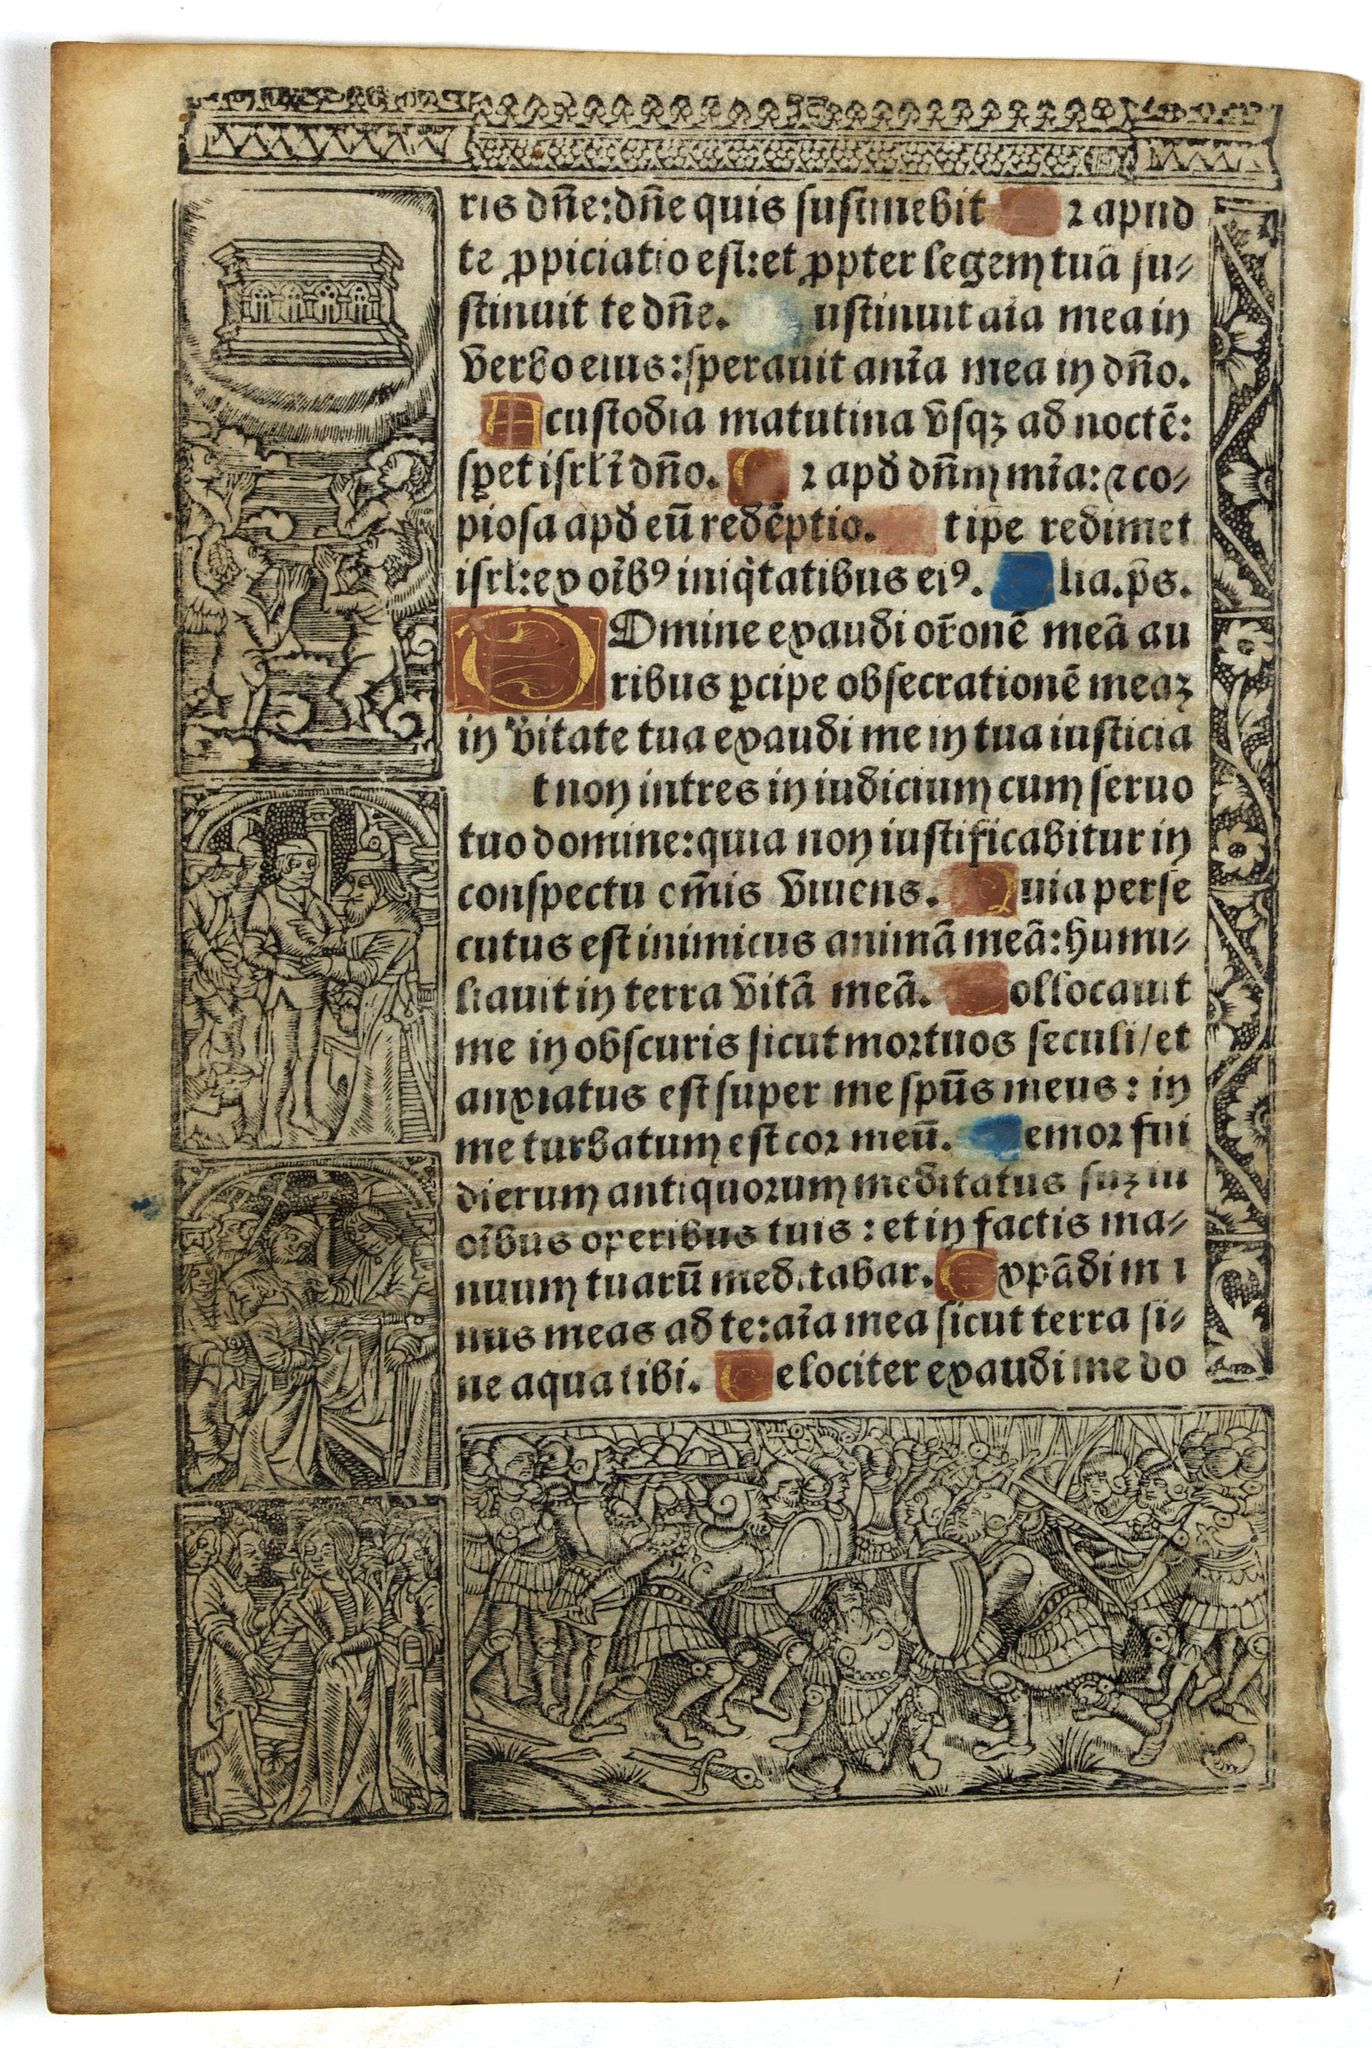 ris dñe: dñe quis sustinebit 2 apud
te ꝓpiciatio est: et ꝓpter legem tuã su⸗
stinuit te dñe. ustinuit aĩa mea in
verbo eius: speravit anĩa mea in dño.
A custodia matutina vsqꝫ ad noctẽ:
sꝑet isrl ĩ dño. Q 2 apđ dñm mĩa: ⁊ co⸗
piosa apđ eũ redẽptio. t ipe redimet
isrl: ex oĩbꝰ iniq̃tatibus eiꝰ. lia. p̃s.
DOmine exaudi or̃onẽ meã au
ribus ꝑcipe obsecrationẽ meaꝫ
in v̾itate tua exaudi me in tua iusticia
t non intres in iudicium cum seruo
tuo domine: quia non iustificabitur in
conspectu om̃is viuens. Quia perse
cutus est inimicus animã meã: humi⸗
liauit in terra vitã meã. ollocauit
me in obscuris sicut mortuos seculi / et
anxiatus est super me spũs meus: in
me turbatum est cor meũ. emor fui
dierum antiquorum meditatus suꝫ in
oĩbus operibus tuis: et in factis ma⸗
nuum tuarũ meditabar. Expãdi m ı
nus meas ad te: aĩa mea sicut terra si⸗
ne aqua tibi. elociter exaudi me do